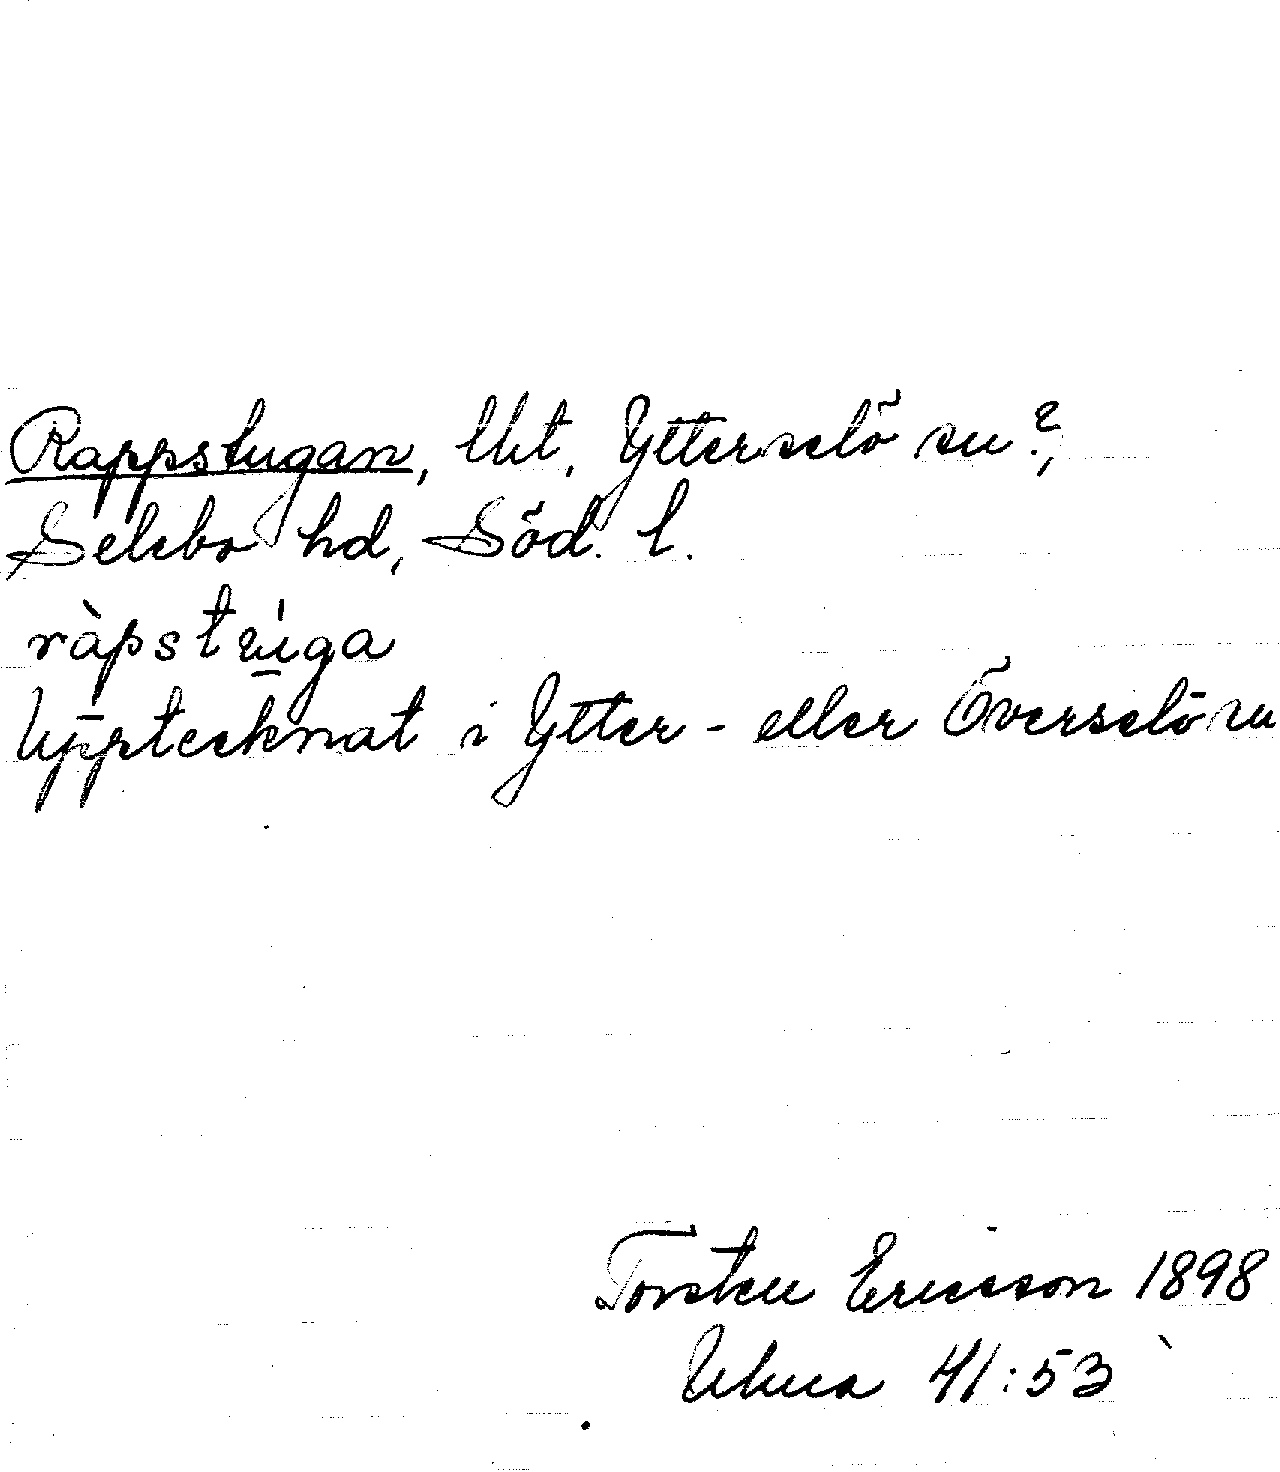 Rappstugan, lht, Ytterselö sn?,
Selebo hd, Söd. l.
ràpstu̱'ga
Upptecknat i Ytter- eller Överselö sn
Torsten Ericsson 1898
41:53